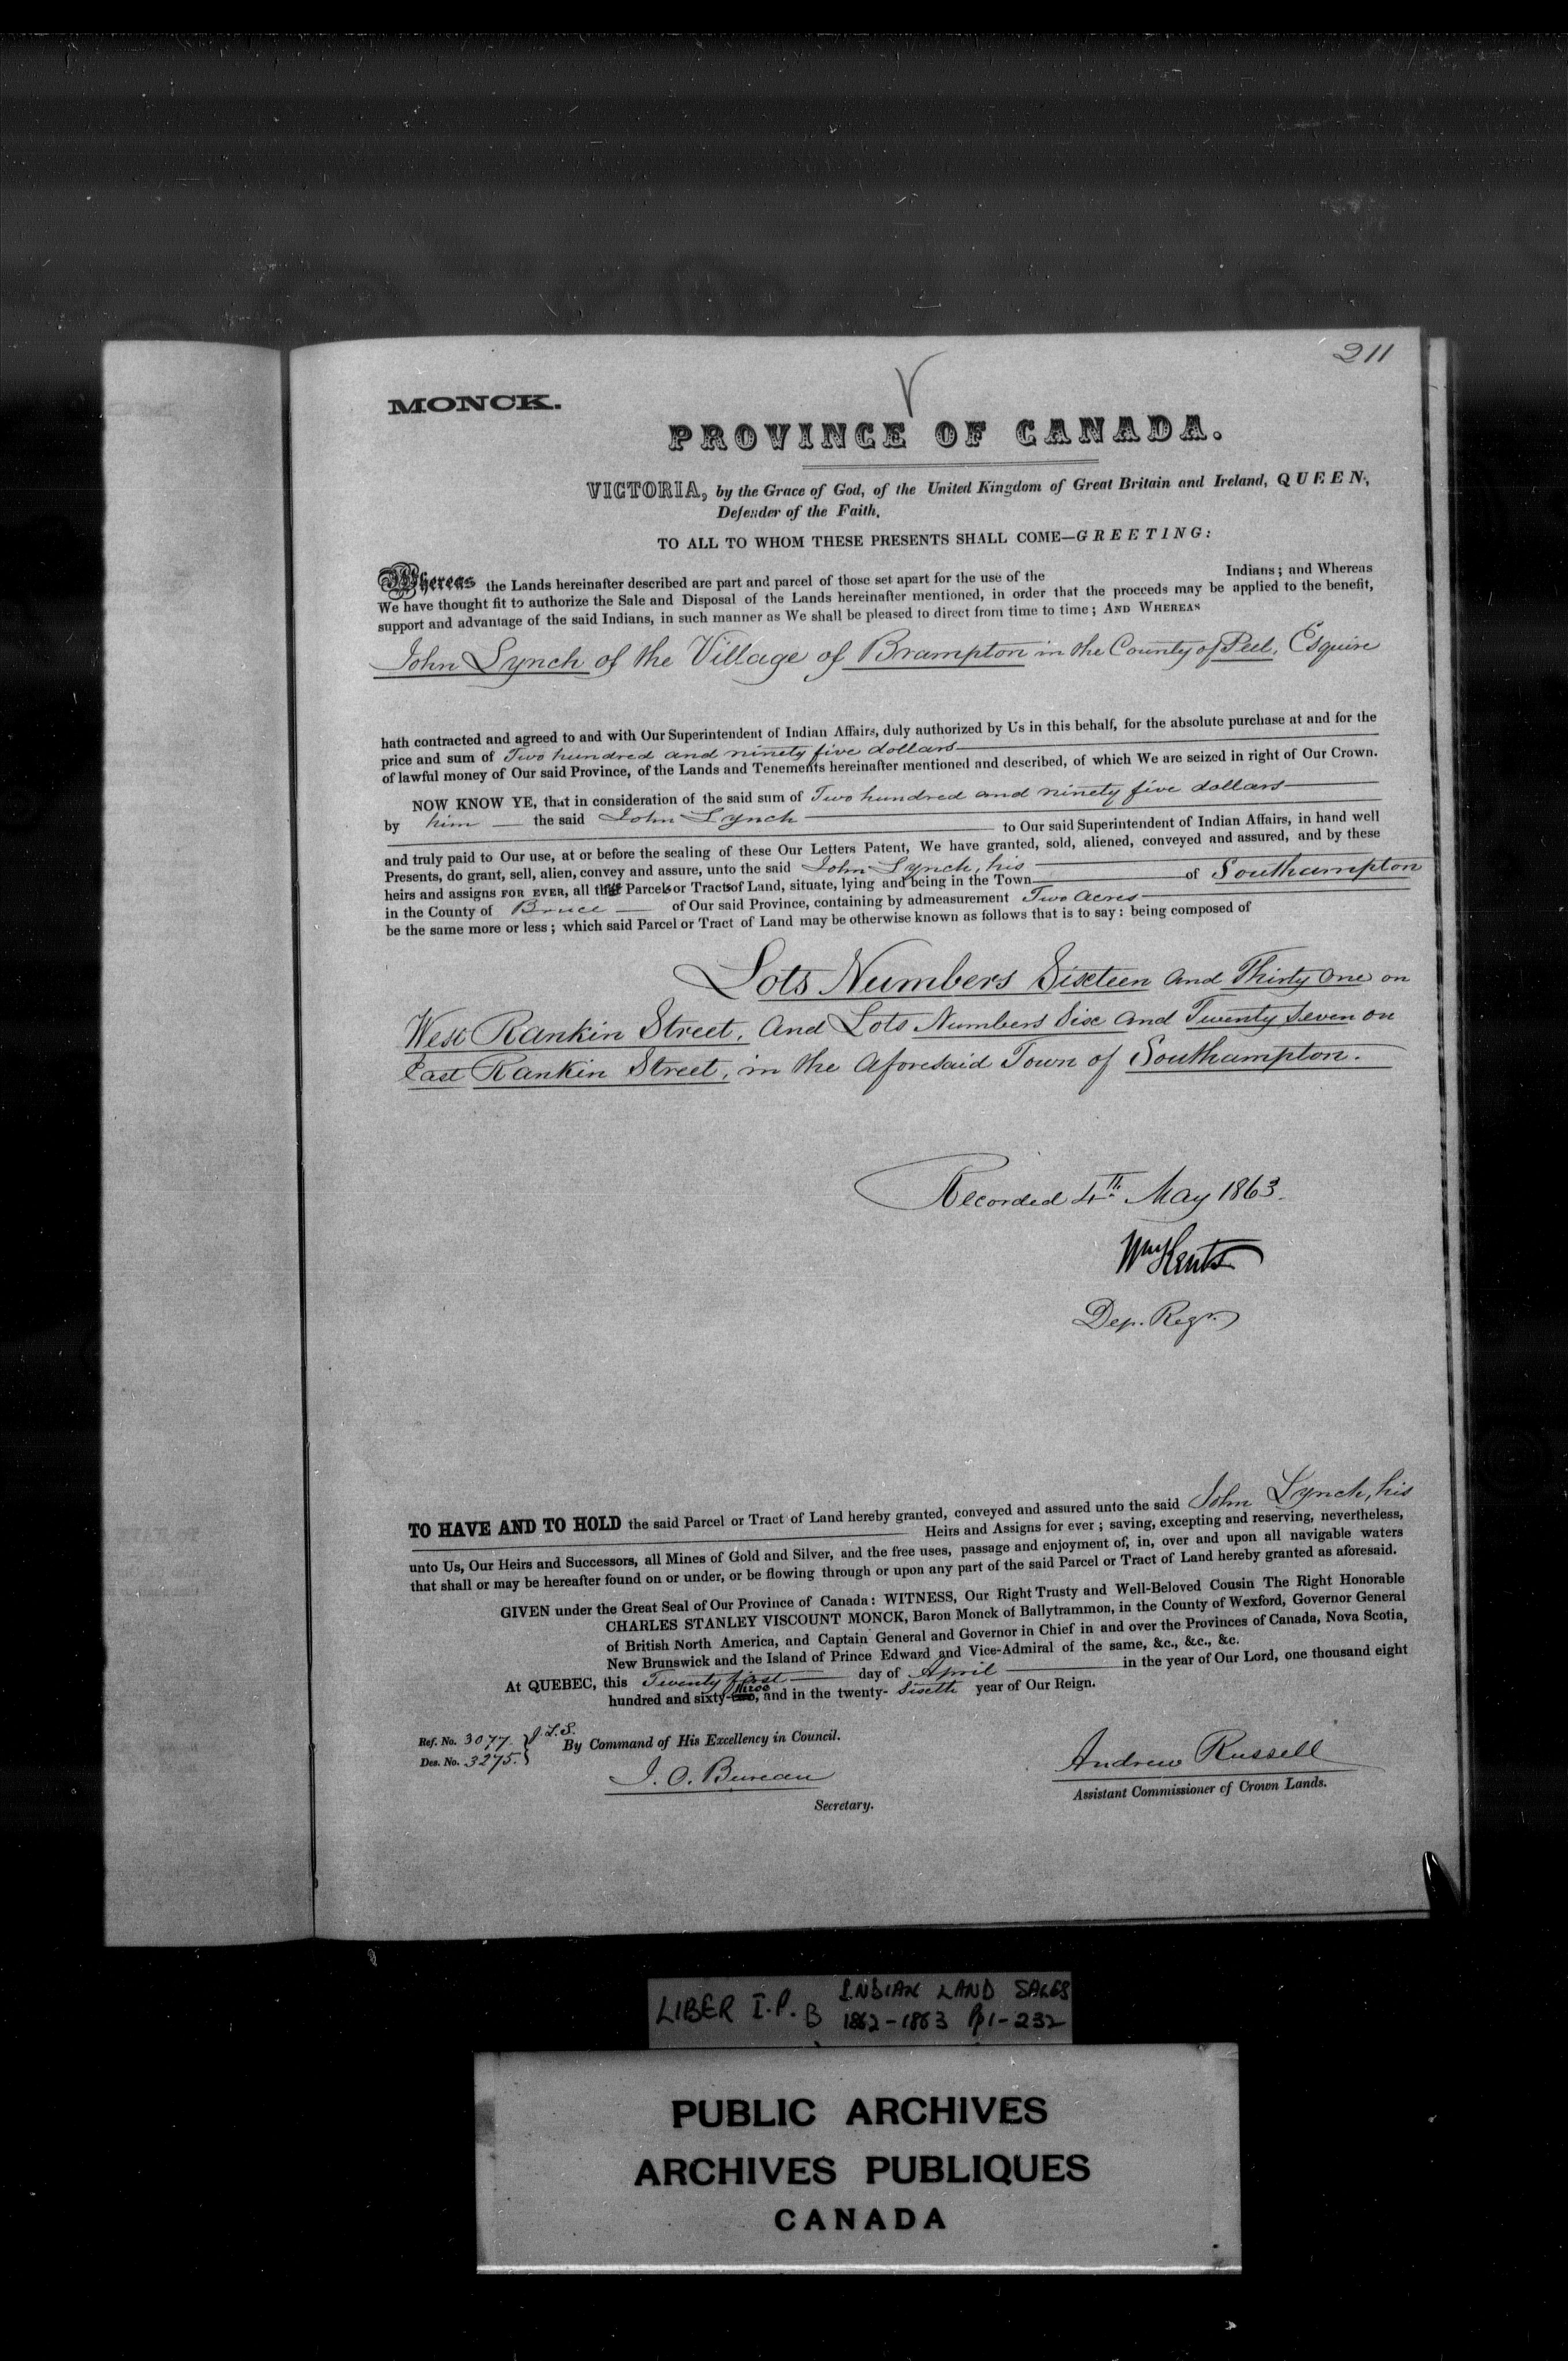 211
MONCK.
PROVINCE OF CANADA.
VICTORIA, by the Grace of God, of the United Kingdom of Great Britain and Ireland, QUEEN,
Defender of the Faith,
TO ALL TO WHOM THESE PRESENTS SHALL COME—GREETING:
Whereas the Lands hereinafter described are part and parcel of those set apart for the use of the Indians; and Whereas
We have thought fit to authorize the Sale and Disposal of the Lands hereinafter mentioned, in order that the proceeds may be applied to the benefit,
support and advantage of the said Indians, in such manner as We shall be pleased to direct from time to time; AND WHEREAS
John Lynch of the Village of Brampton in the County of Peel, Esquire
hath contracted and agreed to and with Our Superintendent of Indian Affairs, duly authorized by Us in this behalf, for the absolute purchase at and for the
price and sum of Two hundred and ninety five dollars
of lawful money of Our said Province, of the Lands and Tenements hereinafter mentioned and described, of which We are seized in right of Our Crown.
NOW KNOW YE, that in consideration of the said sum of Two hundred and ninety five dollars
by him the said John Lynch to Our said Superintendent of Indian Affairs, in hand well
and truly paid to Our use, at or before the sealing of these Our Letters Patent, We have granted, sold, aliened, conveyed and assured, and by these
Presents, do grant, sell, alien, convey and assure, unto the said John Lynch, his
heirs and assigns FOR EVER, all those Parcels or Tracts of Land, situate, lying and being in the Town of Southampton
in the County of Bruce of Our said Province, containing by admeasurement Two Acres
be the same more or less; which said Parcel or Tract of Land may be otherwise known as follows that is to say: being composed of
Lots Numbers Sixteen and Thirty One on
West Rankin Street, and Lots Numbers Six and Twenty Seven on
East Rankin Street, in the aforesaid Town of Southampton.
Recorded 4th May 1863.
Wm Kent
Dep. Regr.
TO HAVE AND TO HOLD the said Parcel or Tract of Land hereby granted, conveyed and assured unto the said John Lynch, his
Heirs and Assigns for ever; saving, excepting and reserving, nevertheless,
unto Us, Our Heirs and Successors, all Mines of Gold and Silver, and the free uses, passage and enjoyment of, in, over and upon all navigable waters
that shall or may be hereafter found on or under, or be flowing through or upon any part of the said Parcel or Tract of Land hereby granted as aforesaid.
GIVEN under the Great Seal of Our Province of Canada: WITNESS, Our Right Trusty and Well-Beloved Cousin The Right Honorable
CHARLES STANLEY VISCOUNT MONCK, Baron Monck of Ballytrammon, in the County of Wexford, Governor General
of British North America, and Captain General and Governor in Chief in and over the Provinces of Canada, Nova Scotia,
New Brunswick and the Island of Prince Edward and Vice-Admiral of the same, &c., &c., &c.
At QUEBEC, this Twenty first day of April in the year of Our Lord, one thousand eight
hundred and sixty-three, and in the twenty-sixth year of Our Reign.
Ref. No. 3077.
Des. No. 3275.
By Command of His Excellency in Council.
J. O. Bureau
Secretary.
Andrew Russell
Assistant Commissioner of Crown Lands.
LIBER I.P. B INDIAN LAND SALES
1862-1863 Pp 1-232
PUBLIC ARCHIVES
ARCHIVES PUBLIQUES
CANADA